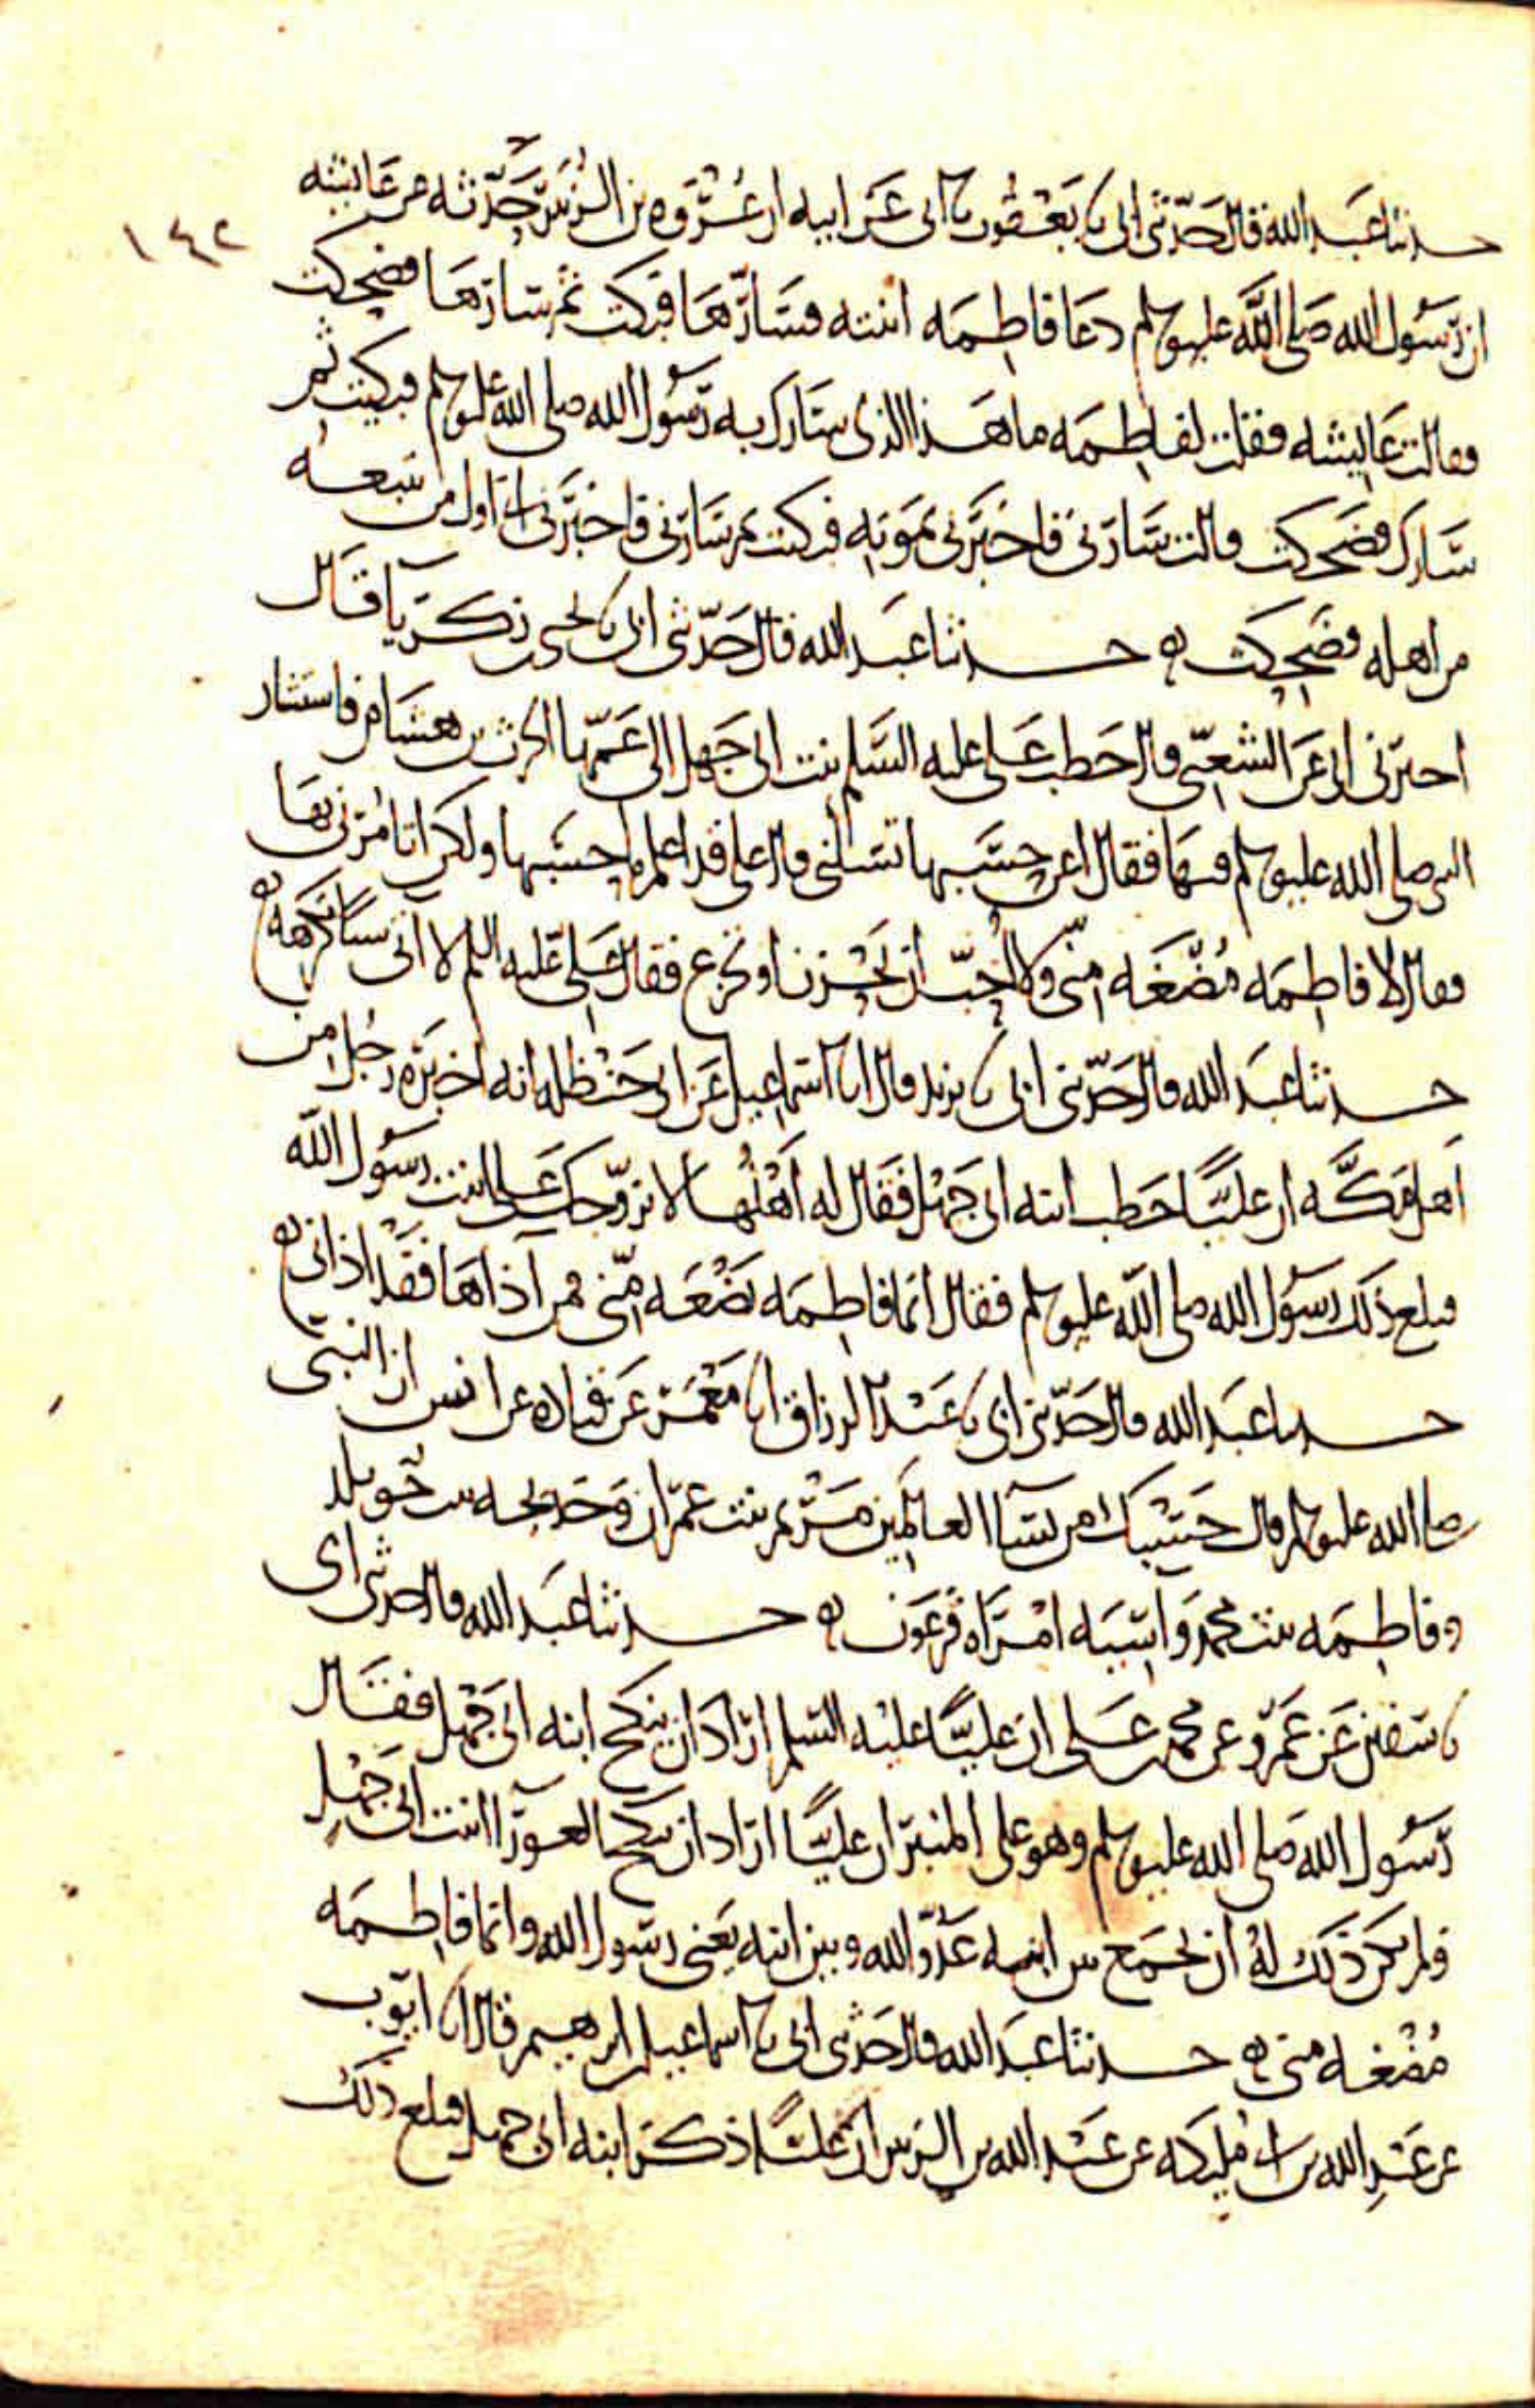 ١٤٢
حدثنا عبد الله قال حدثني ابي نا يعقوب نا ابي عن ابيه ان عروه بن الزبير حدثه عن عايشه
ان رسول الله صلى الله عليه وسلم دعا فاطمه ابنته فسارّها فبكت ثم سارها فضحكت
فقالت عايشه فقلت لفاطمه ما هذا الذي سارك به رسول الله صلى الله عليه وسلم فبكيت ثم
سارك فضحكت قالت سارني فاخبرني بموته فبكيت ثم سارني فاخبرني اني اول من اتبعه
من اهله فضحكت ه حدثنا عبد الله قال حدثني ابي نا يحيى بن زكريا قال
اخبرني ابي عن الشعبي قال خطب علي عليه السلم بنت ابي جهل الى عمها الحرث بن هشام فاستشار
النبي صلى الله عليه وسلم فيها فقال اعن حسبها تسلني قال علي قد اعلم ما حسبها ولكن اتامرني بها
فقال لا فاطمه مُضغه مني ولا احب ان تحزن او تجزع فقال علي عليه السلم لا اتي شيا تكرهه ه
حدثنا عبد الله قال حدثني ابي نا يزيد قال انا اسماعيل عن ابي حنظله انه اخبره رجل من
اهل مكّه ان عليًّا خطب ابنه ابي جهل فقال له اهلها لا نزوجك على ابنت رسول الله
فبلغ ذلك رسول الله صلى الله عليه وسلم فقال انما فاطمه بضعه مني فمن اذاها فقد اذاني ه
حدثنا عبد الله قال حدثني ابي نا عبد الرزاق انا معمر عن قتاده عن انس ان النبي
صلى الله عليه وسلم قال حسبك من نسا العالمين مريم بنت عمران وخديجه بنت خويلد
وفاطمه بنت محمد واسيه امراه فرعون ه حدثنا عبد الله قال حدثني ابي
نا سفين عن عمرو عن محمد بن علي ان عليًّا عليه السلم اراد ان ينكح ابنه ابي جهل فقال
رسول الله صلى الله عليه وسلم وهو على المنبر ان عليًّا اراد ان ينكح العورا ابنت ابي جهل
فلم يكن ذلك له ان يجمع بين ابنه عدوّ الله وبين ابنه يعني رسول الله وانما فاطمه
مُضغه مني ه حدثنا عبد الله قال حدثني ابي نا اسماعيل بن ابرهيم قال انا ايوب
عن عبد الله بن ابي مليكه عن عبد الله بن الزبير ان عليًّا ذكر ابنه ابي جهل فبلغ ذلك